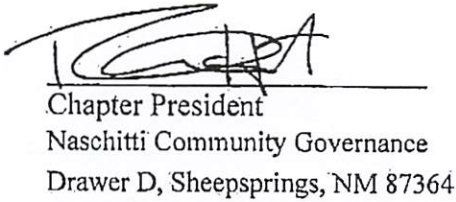 Chapter President
Naschitti Community Governance
Drawer D, Sheepsprings, NM 87364